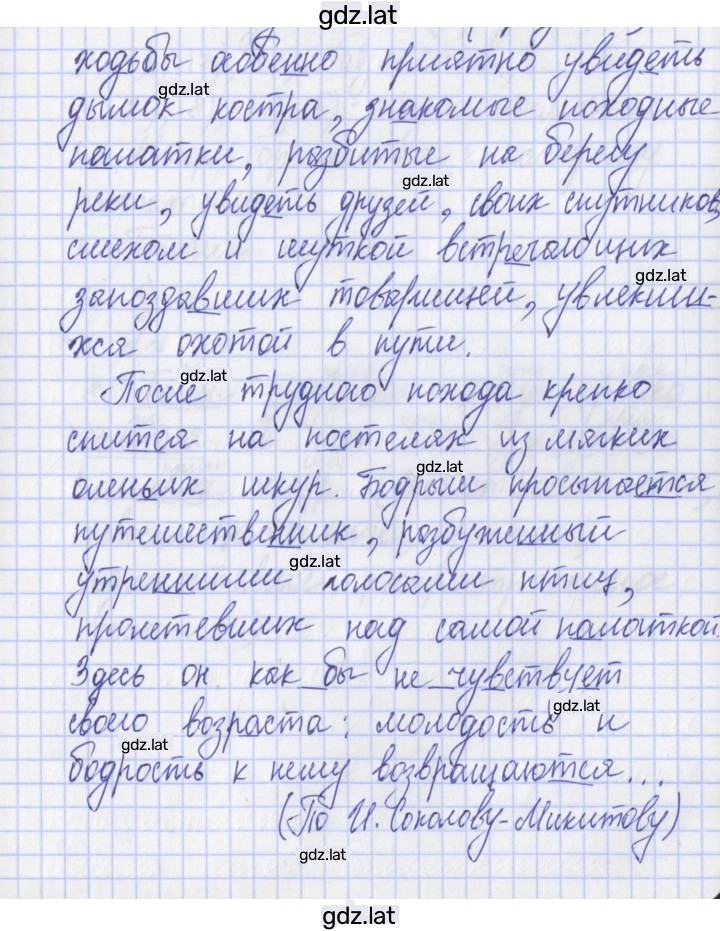 gdz.lat
ходьбы особенно приятно увидеть
gdz.lat
дымок костра, знакомые походные
палатки, разбитые на берегу
gdz.lat
реки, увидеть друзей, своих спутников,
смехом и шуткой встречающих
gdz.lat
запоздавших товарищей, увлекши-
хся охотой в пути.
gdz.lat
После трудного похода крепко
спится на постелях из мягких
gdz.lat
оленьих шкур. Бодрым просыпается
путешественник, разбуженный
gdz.lat
утренними голосами птиц,
пролетевших над самой палаткой.
Здесь он как бы не чувствует
gdz.lat
своего возраста: молодость и
gdz.lat
бодрость к нему возвращаются...
(По И. Соколову-Микитову)
gdz.lat
gdz.lat